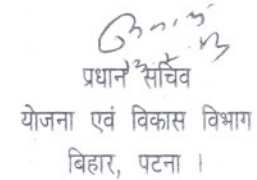 प्रधान सचिव
योजना एवं विकास विभाग
बिहार, पटना ।